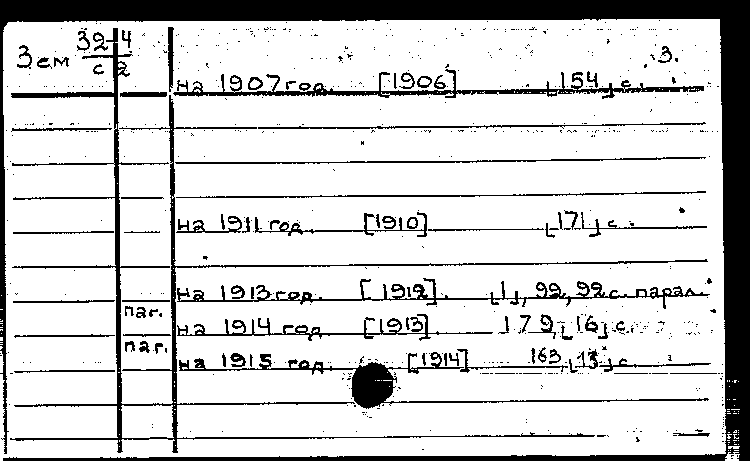 3.
Зем 32-4
с 2
на 1907 год. [1906] ⌊154⌋ с.
на 1911 год. [1910] ⌊171⌋ с.
на 1913 год. [1912]. ⌊1⌋, 92, 92 с. парал.
паг.
на 1914 год [1913]. 179, ⌊16⌋ с.
паг.
на 1915 год. [1914]. 163, ⌊13⌋ с.